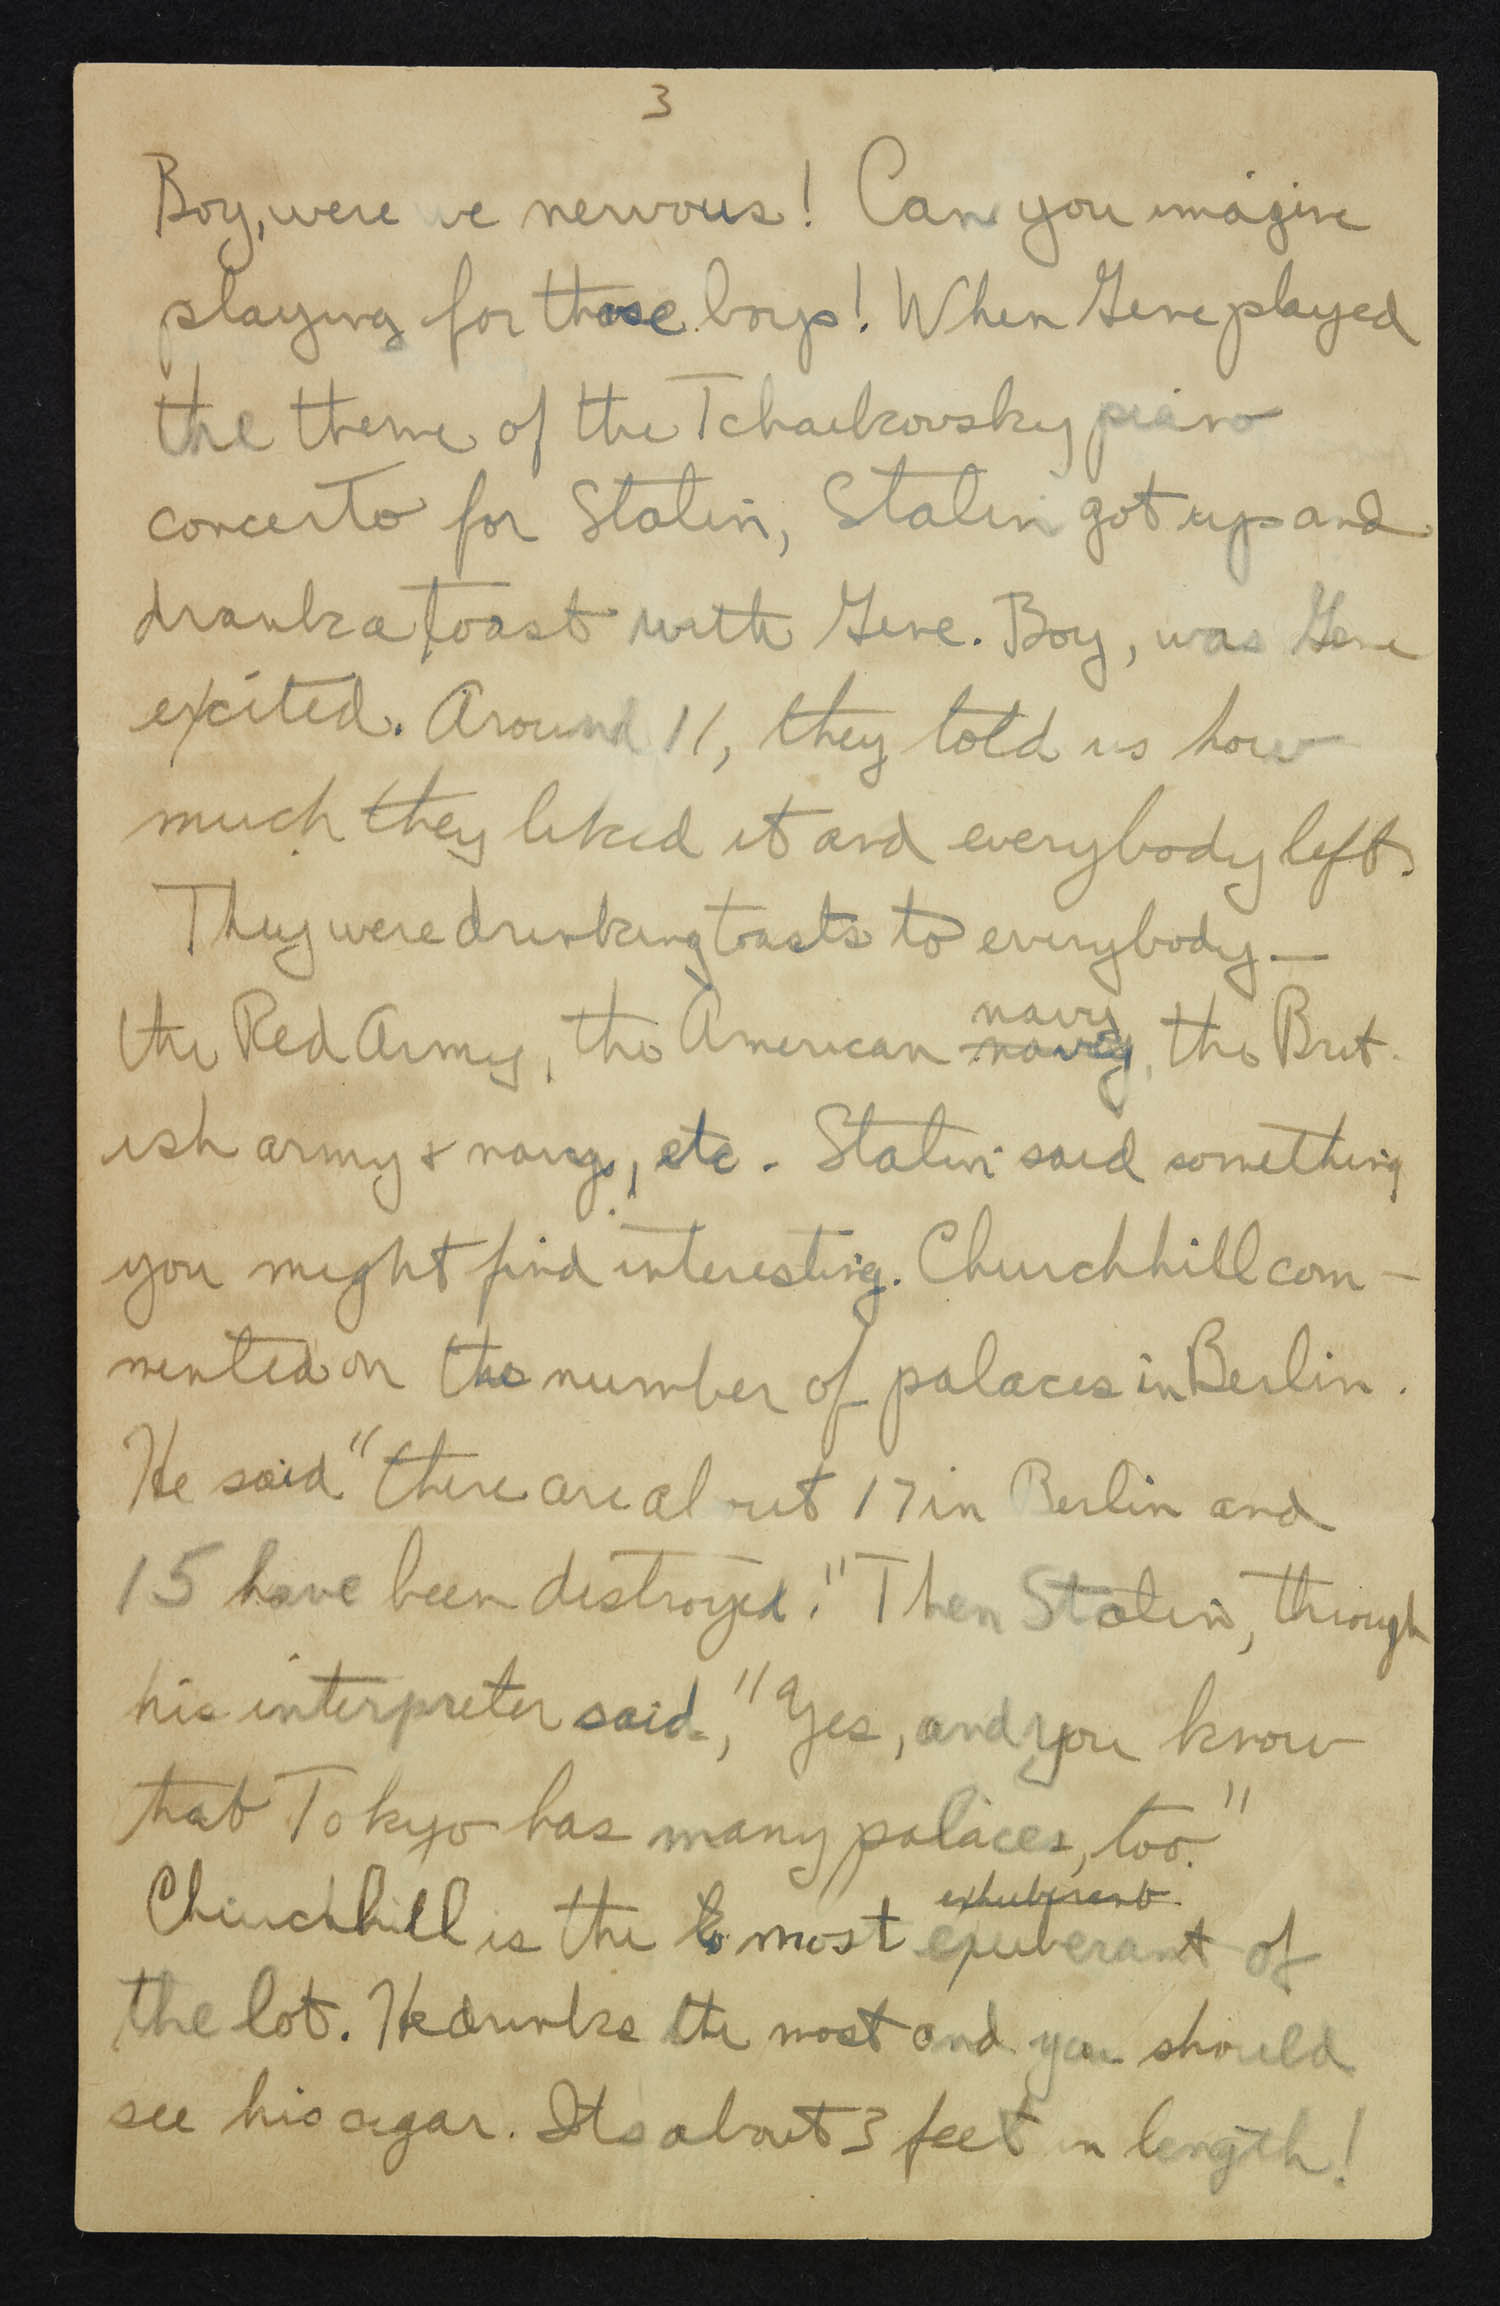 3
Boy, were we nervous! Can you imagine
playing for those boys! When Gene played
the theme of the Tchaikovsky piano
concerto for Stalin, Stalin got up and
drank a toast with Gene. Boy, was Gene
excited. Around 11, they told us how
much they liked it and everybody left.
They were drinking toasts to everybody—
navy
the Red Army, the American navy, the Brit-
ish army & navy, etc. Stalin said something
you might find interesting. Churchhill com-
mented on the number of palaces in Berlin.
He said "there are about 17 in Berlin and
15 have been destroyed." Then Stalin, through
his interpreter said, "Yes, and you know
that Tokyo has many palaces, too."
exhuberant
Churchhill is the most exuberant of
the lot. He drinks the most and you should
see his cigar. Its about 3 feet in length!